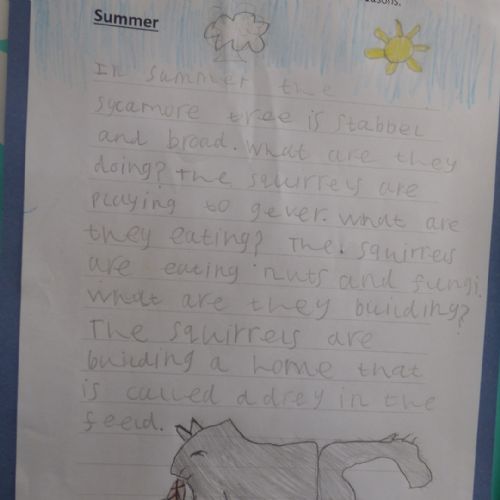 seasons.
Summer
In summer the
sycamore tree is stabbel
and broad. What are they
doing? The squirrels are
playing to gever. What are
they eating? The squirrels
are eating nuts and fungi.
What are they building?
The squirrels are
building a home that
is called a drey in the
feeld.